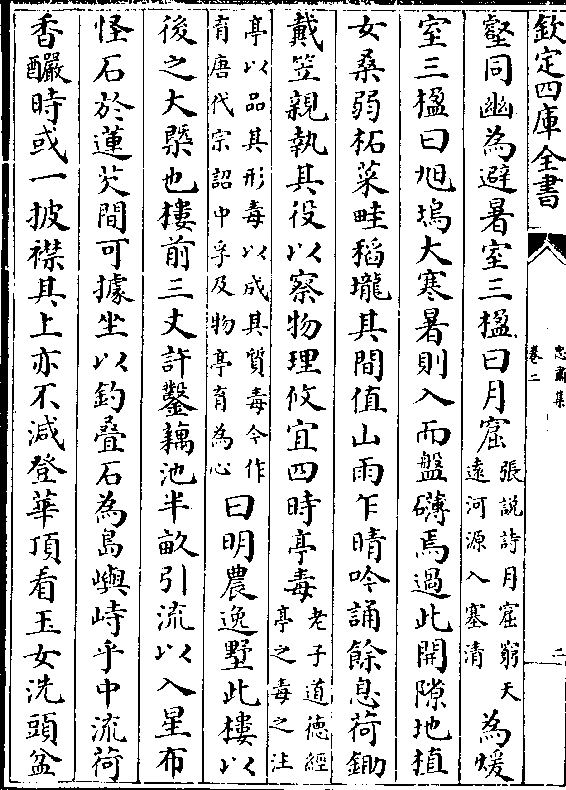 欽定四庫全書
忠肅集
卷二
二
壑同幽為避暑室三楹曰月窟張說詩月窟窮天遠河源入塞清為煖
室三楹曰旭塢大寒暑則入而盤礴焉過此開隙地植
女桑弱柘菜畦稻壠其間值山雨乍晴吟誦餘息荷鋤
戴笠親執其役以察物理攸宜四時亭毒老子道德經亭之毒之注
亭以品其形毒以成其質毒今作育唐代宗詔中孚及物亭育為心曰明農逸墅此樓以
後之大槩也樓前三丈許鑿藕池半畝引流以入星布
怪石於蓮芡間可據坐以釣疊石為島嶼峙乎中流荷
香釅時或一披襟其上亦不減登華頂看玉女洗頭盆